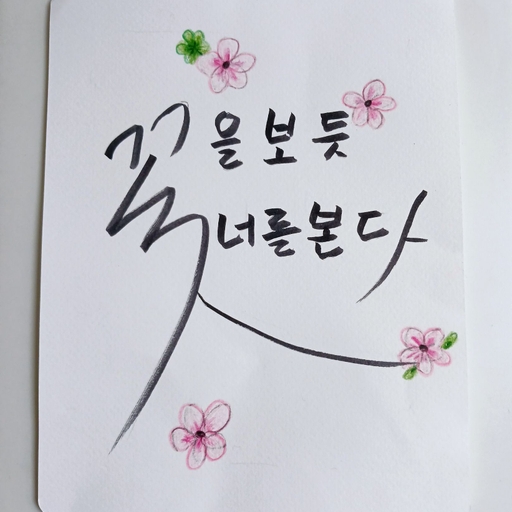 꽃을 보듯
너를 본다